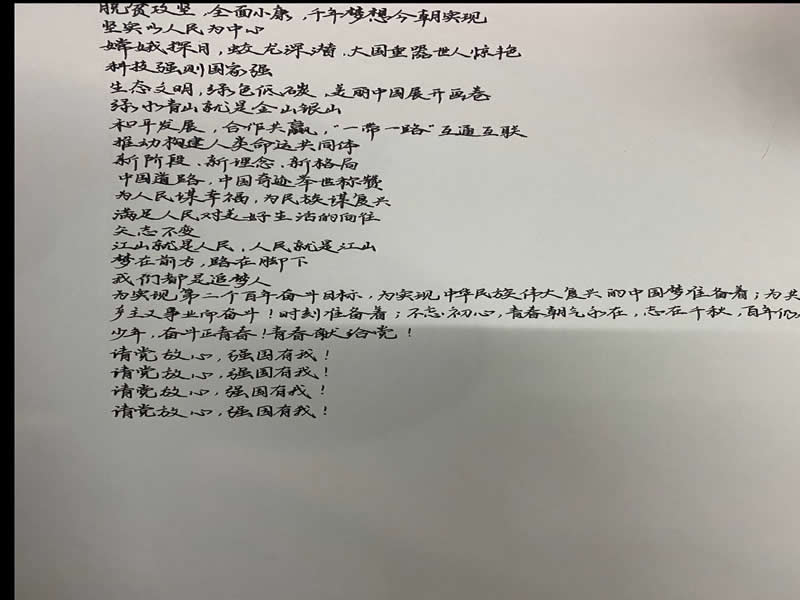 脱贫攻坚,全面小康,千年梦想今朝实现
坚实以人民为中心
嫦娥探月,蛟龙深潜,大国重器世人惊艳
科技强则国家强
生态文明,绿色低碳,美丽中国展开画卷
绿水青山就是金山银山
和平发展,合作共赢,“一带一路”互通互联
推动构建人类命运共同体
新阶段、新理念、新格局
中国道路,中国奇迹举世称赞
为人民谋幸福,为民族谋复兴
满足人民对美好生活的向往
矢志不变
江山就是人民,人民就是江山
梦在前方,路在脚下
我们都是追梦人
为实现第二个百年奋斗目标,为实现中华民族伟大复兴的中国梦准备着;为共
产主义事业而奋斗!时刻准备着;不忘初心,青春朝气永在,志在千秋,百年仍
少年,奋斗正青春!青春献给党!
请党放心,强国有我!
请党放心,强国有我!
请党放心,强国有我!
请党放心,强国有我!